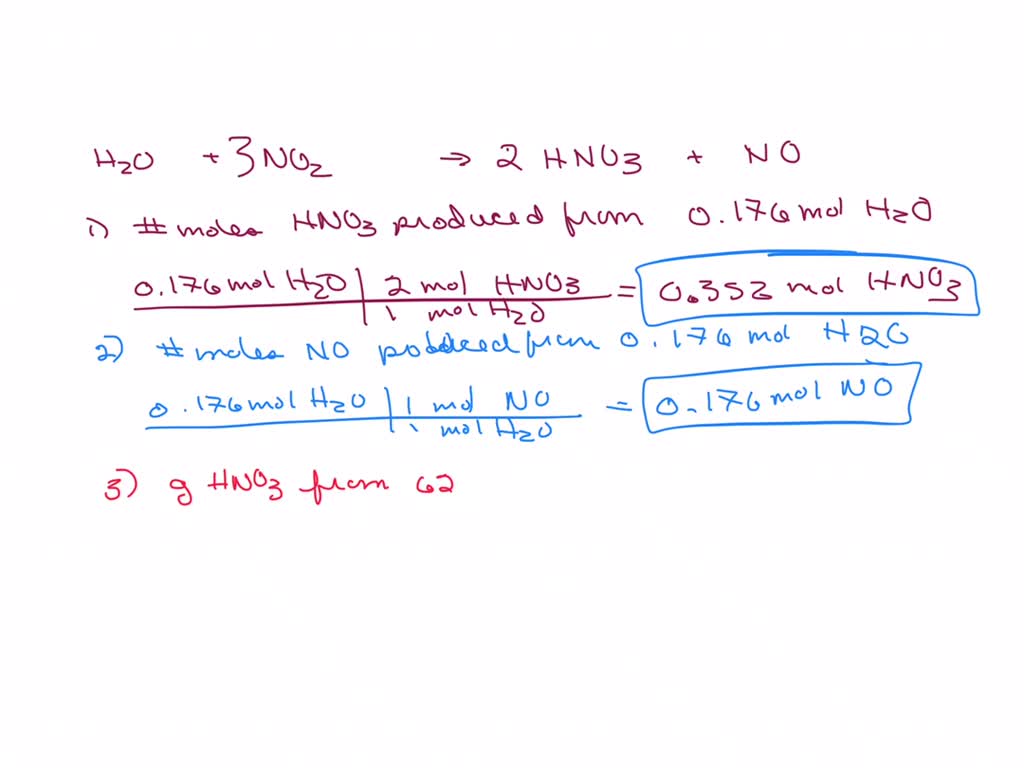 H2O + 3NO2 → 2 HNO3 + NO
1) # moles HNO3 produced from 0.176 mol H2O
0.176 mol H2O | 2 mol HNO3 = 0.352 mol HNO3
1 mol H2O
2) # moles NO produced from 0.176 mol H2O
0.176 mol H2O | 1 mol NO = 0.176 mol NO
1 mol H2O
3) g HNO3 from 62